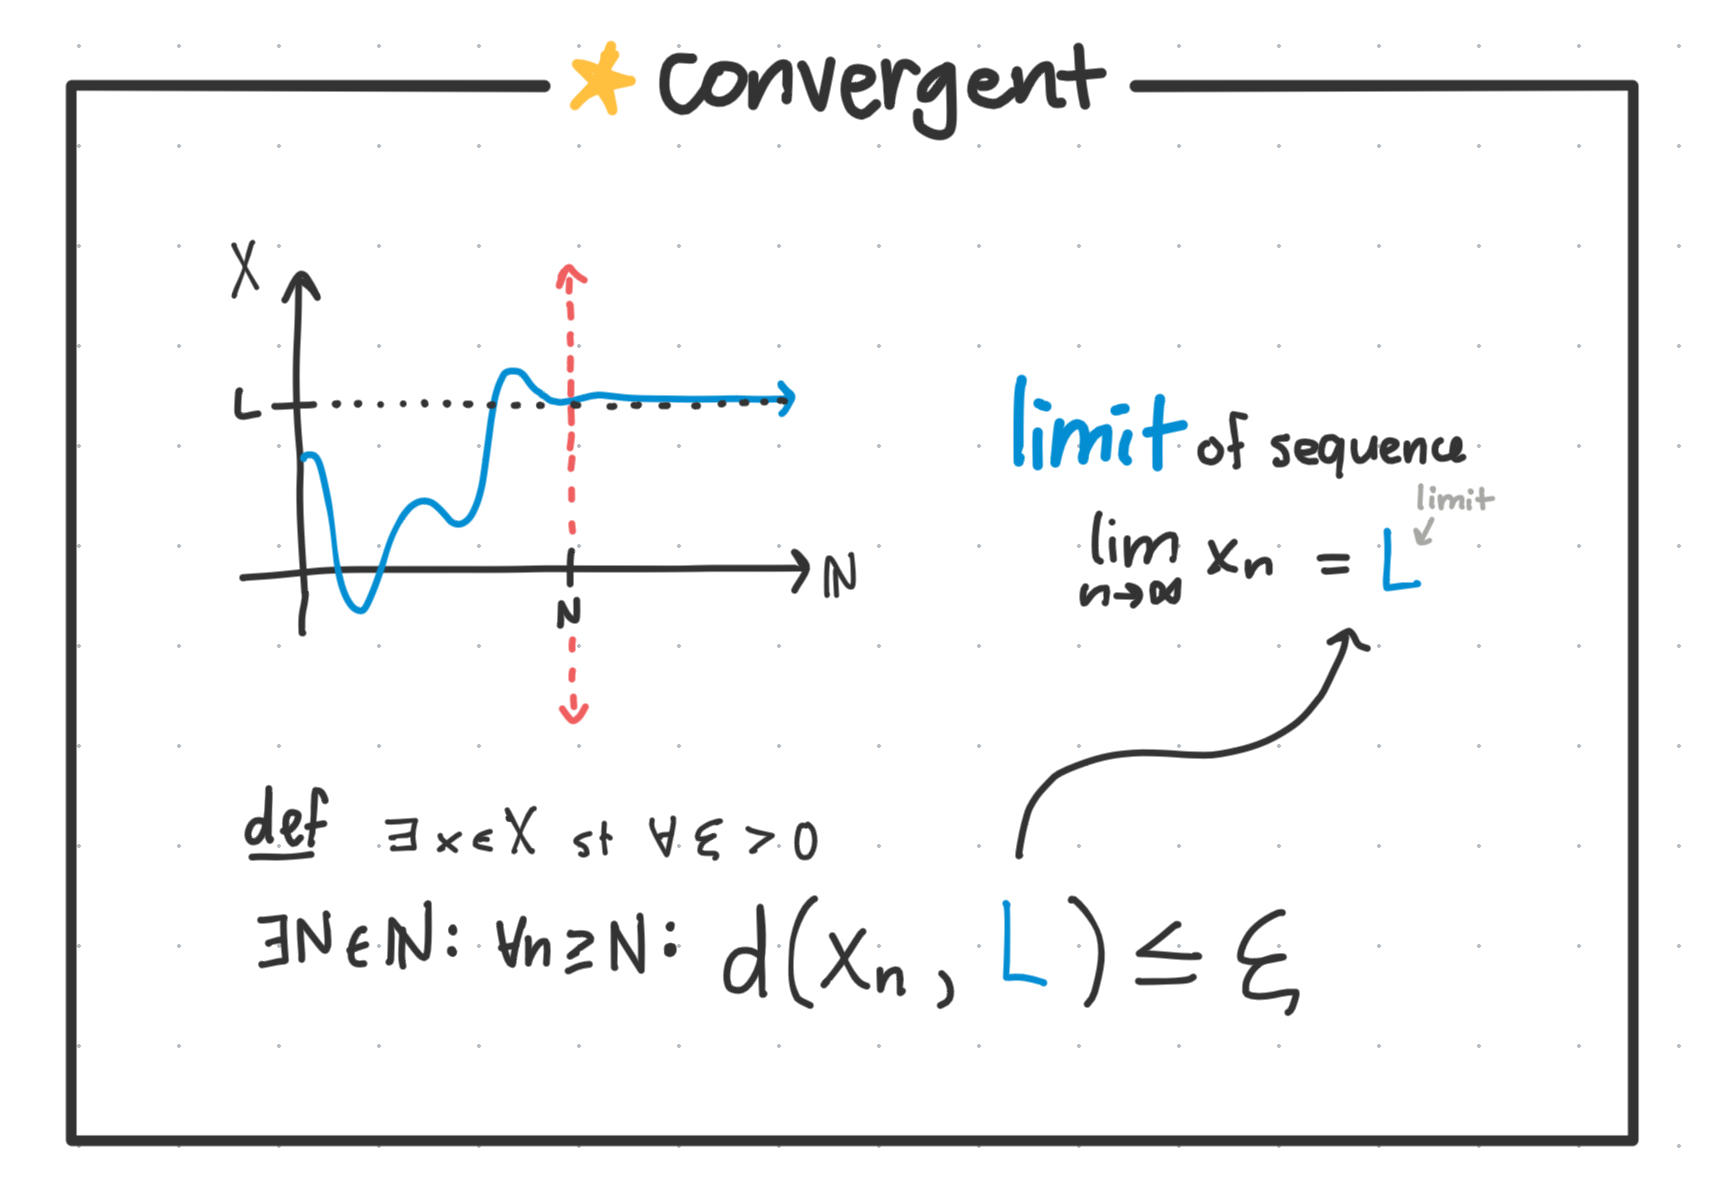 convergent
X
L
N
ℕ
limit of sequence
limit
lim x_n = L
n→∞
def ∃ x ∈ X st ∀ ξ > 0
∃N ∈ ℕ: ∀n ≥ N: d(x_n, L) ≤ ξ